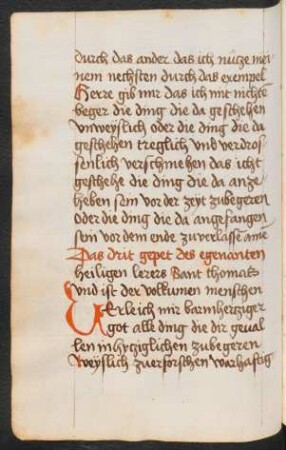 durch das ander das ich nutze mei
nem nechsten durch das exempel
Herre gib mir das ich mit nichte
beger die ding die da geschehen
vnweyslich oder die ding die da
geschehen treglich vnd verdros
senlich verschmehen das icht
geschehe die ding die da anze
heben sein vor der zeyt zubegeren
oder die ding die da angefangen
sein vor dem ende zuverlassē amē
Das drit gepet des egenanten
heiligen lerers Sant thomas
vnd ist der volkumen menschen
Verleich mir barmhertziger
got alle ding die dir geual
len inhytziglichen zubegeren
weyslich zuerforschen warhaftig